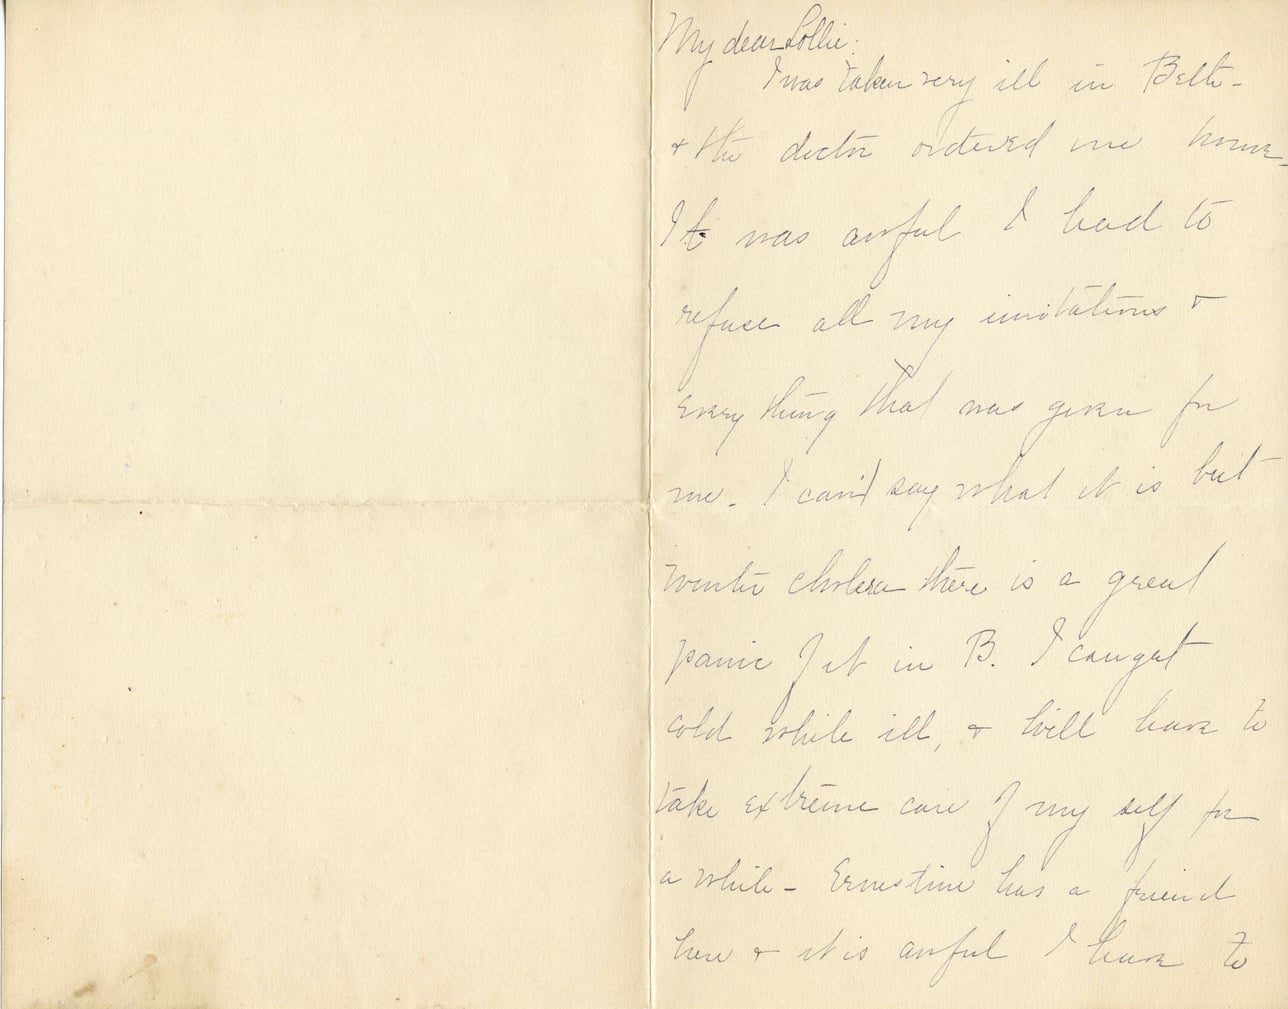 My dear Lollie:
I was taken very ill in Balto-
& the doctor ordered me home-
It was awful I had to
refuse all my invitations &
every thing that was given for
me. I can't say what it is but
winter cholera there is a great
panic of it in B. I caught
cold while ill, & will have to
take extreme care of my self for
a while - Ernestine has a friend
here & it is awful I have to